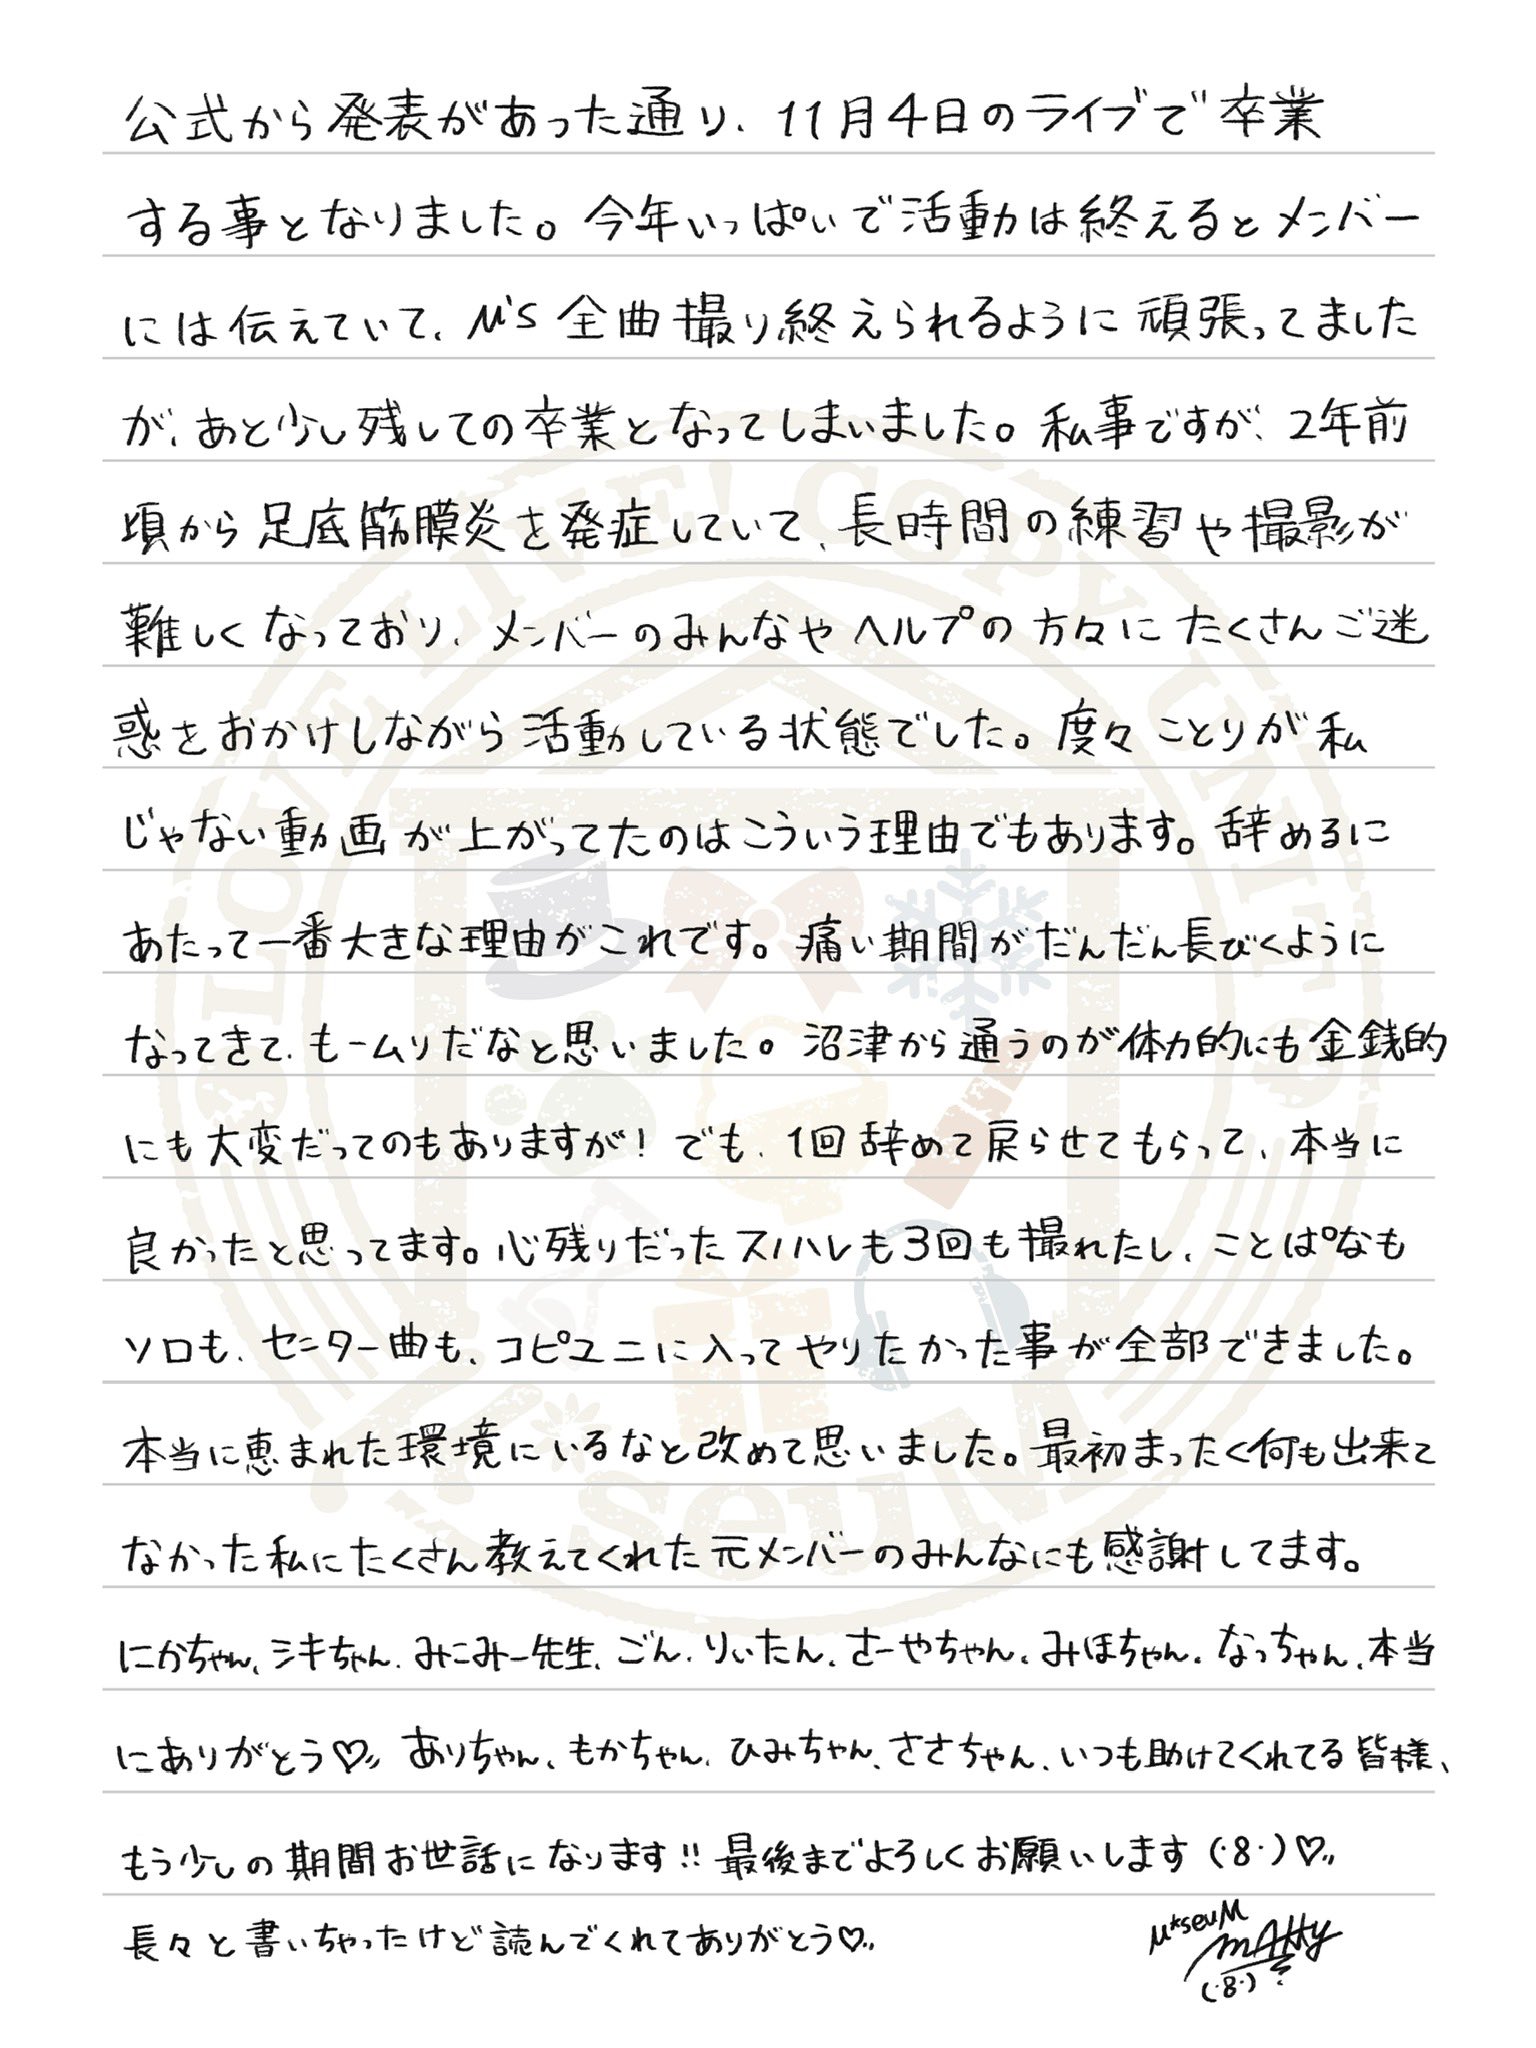 公式から発表があった通り、11月4日のライブで卒業
する事となりました。今年いっぱいで活動は終えるとメンバー
には伝えていて、μ's 全曲撮り終えられるように頑張ってました
が、あと少し残しての卒業となってしまいました。私事ですが、2年前
頃から足底筋膜炎を発症していて、長時間の練習や撮影が
難しくなっており、メンバーのみんなやヘルプの方々にたくさんご迷
惑をおかけしながら活動している状態でした。度々ことりが私
じゃない動画が上がってたのはこういう理由でもあります。辞めるに
あたって一番大きな理由がこれです。痛い期間がだんだん長びくように
なってきて、もームリだなと思いました。沼津から通うのが体力的にも金銭的
にも大変だってのもありますが!でも、1回辞めて戻らせてもらって、本当に
良かったと思ってます。心残りだったスノハレも3回も撮れたし、ことぱなも
ソロも、センター曲も、コピユニに入ってやりたかった事が全部できました。
本当に恵まれた環境にいるなと改めて思いました。最初まったく何も出来て
なかった私にたくさん教えてくれた元メンバーのみんなにも感謝してます。
にかちゃん、シキちゃん、みこみー先生、ごん、りぃたん、さーやちゃん、みほちゃん、なっちゃん、本当
にありがとう♡〃 ありちゃん、もかちゃん、ひみちゃん、ささちゃん、いつも助けてくれてる皆様、
もう少しの期間お世話になります!! 最後までよろしくお願いします(・8・)♡〃
長々と書いちゃったけど読んでくれてありがとう♡〃
μ*seuM
mAtty
(・8・)
LOVE LIVE! COPY UNIT
*seuM